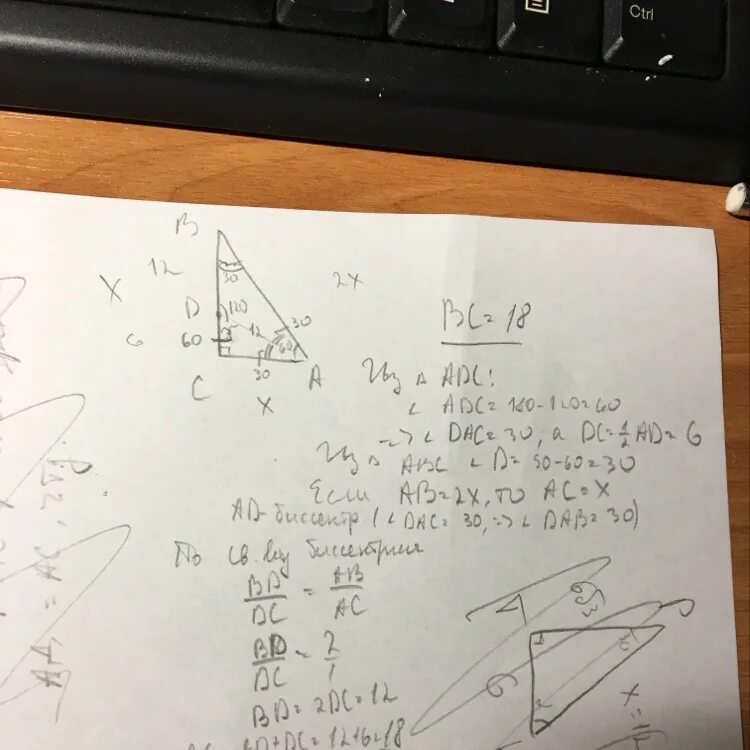 Ctrl
B
12
30
2x
X
D
120
12
30
6
60
60
C
30
A
x
BC = 18
Из △ ADC:
∠ ADC = 180-120=60
=> ∠ DAC = 30, а DC = 1/2 AD = 6
Из △ ABC ∠ B = 90-60=30
Если AB=2x, то AC=x
AD-биссектр (∠ DAC = 30, => ∠ DAB = 30)
По св.ву биссектрисы
BD/DC = AB/AC
BD/DC = 2/1
BD = 2DC = 12
BD+DC = 12+6=18
6√3
6
X =